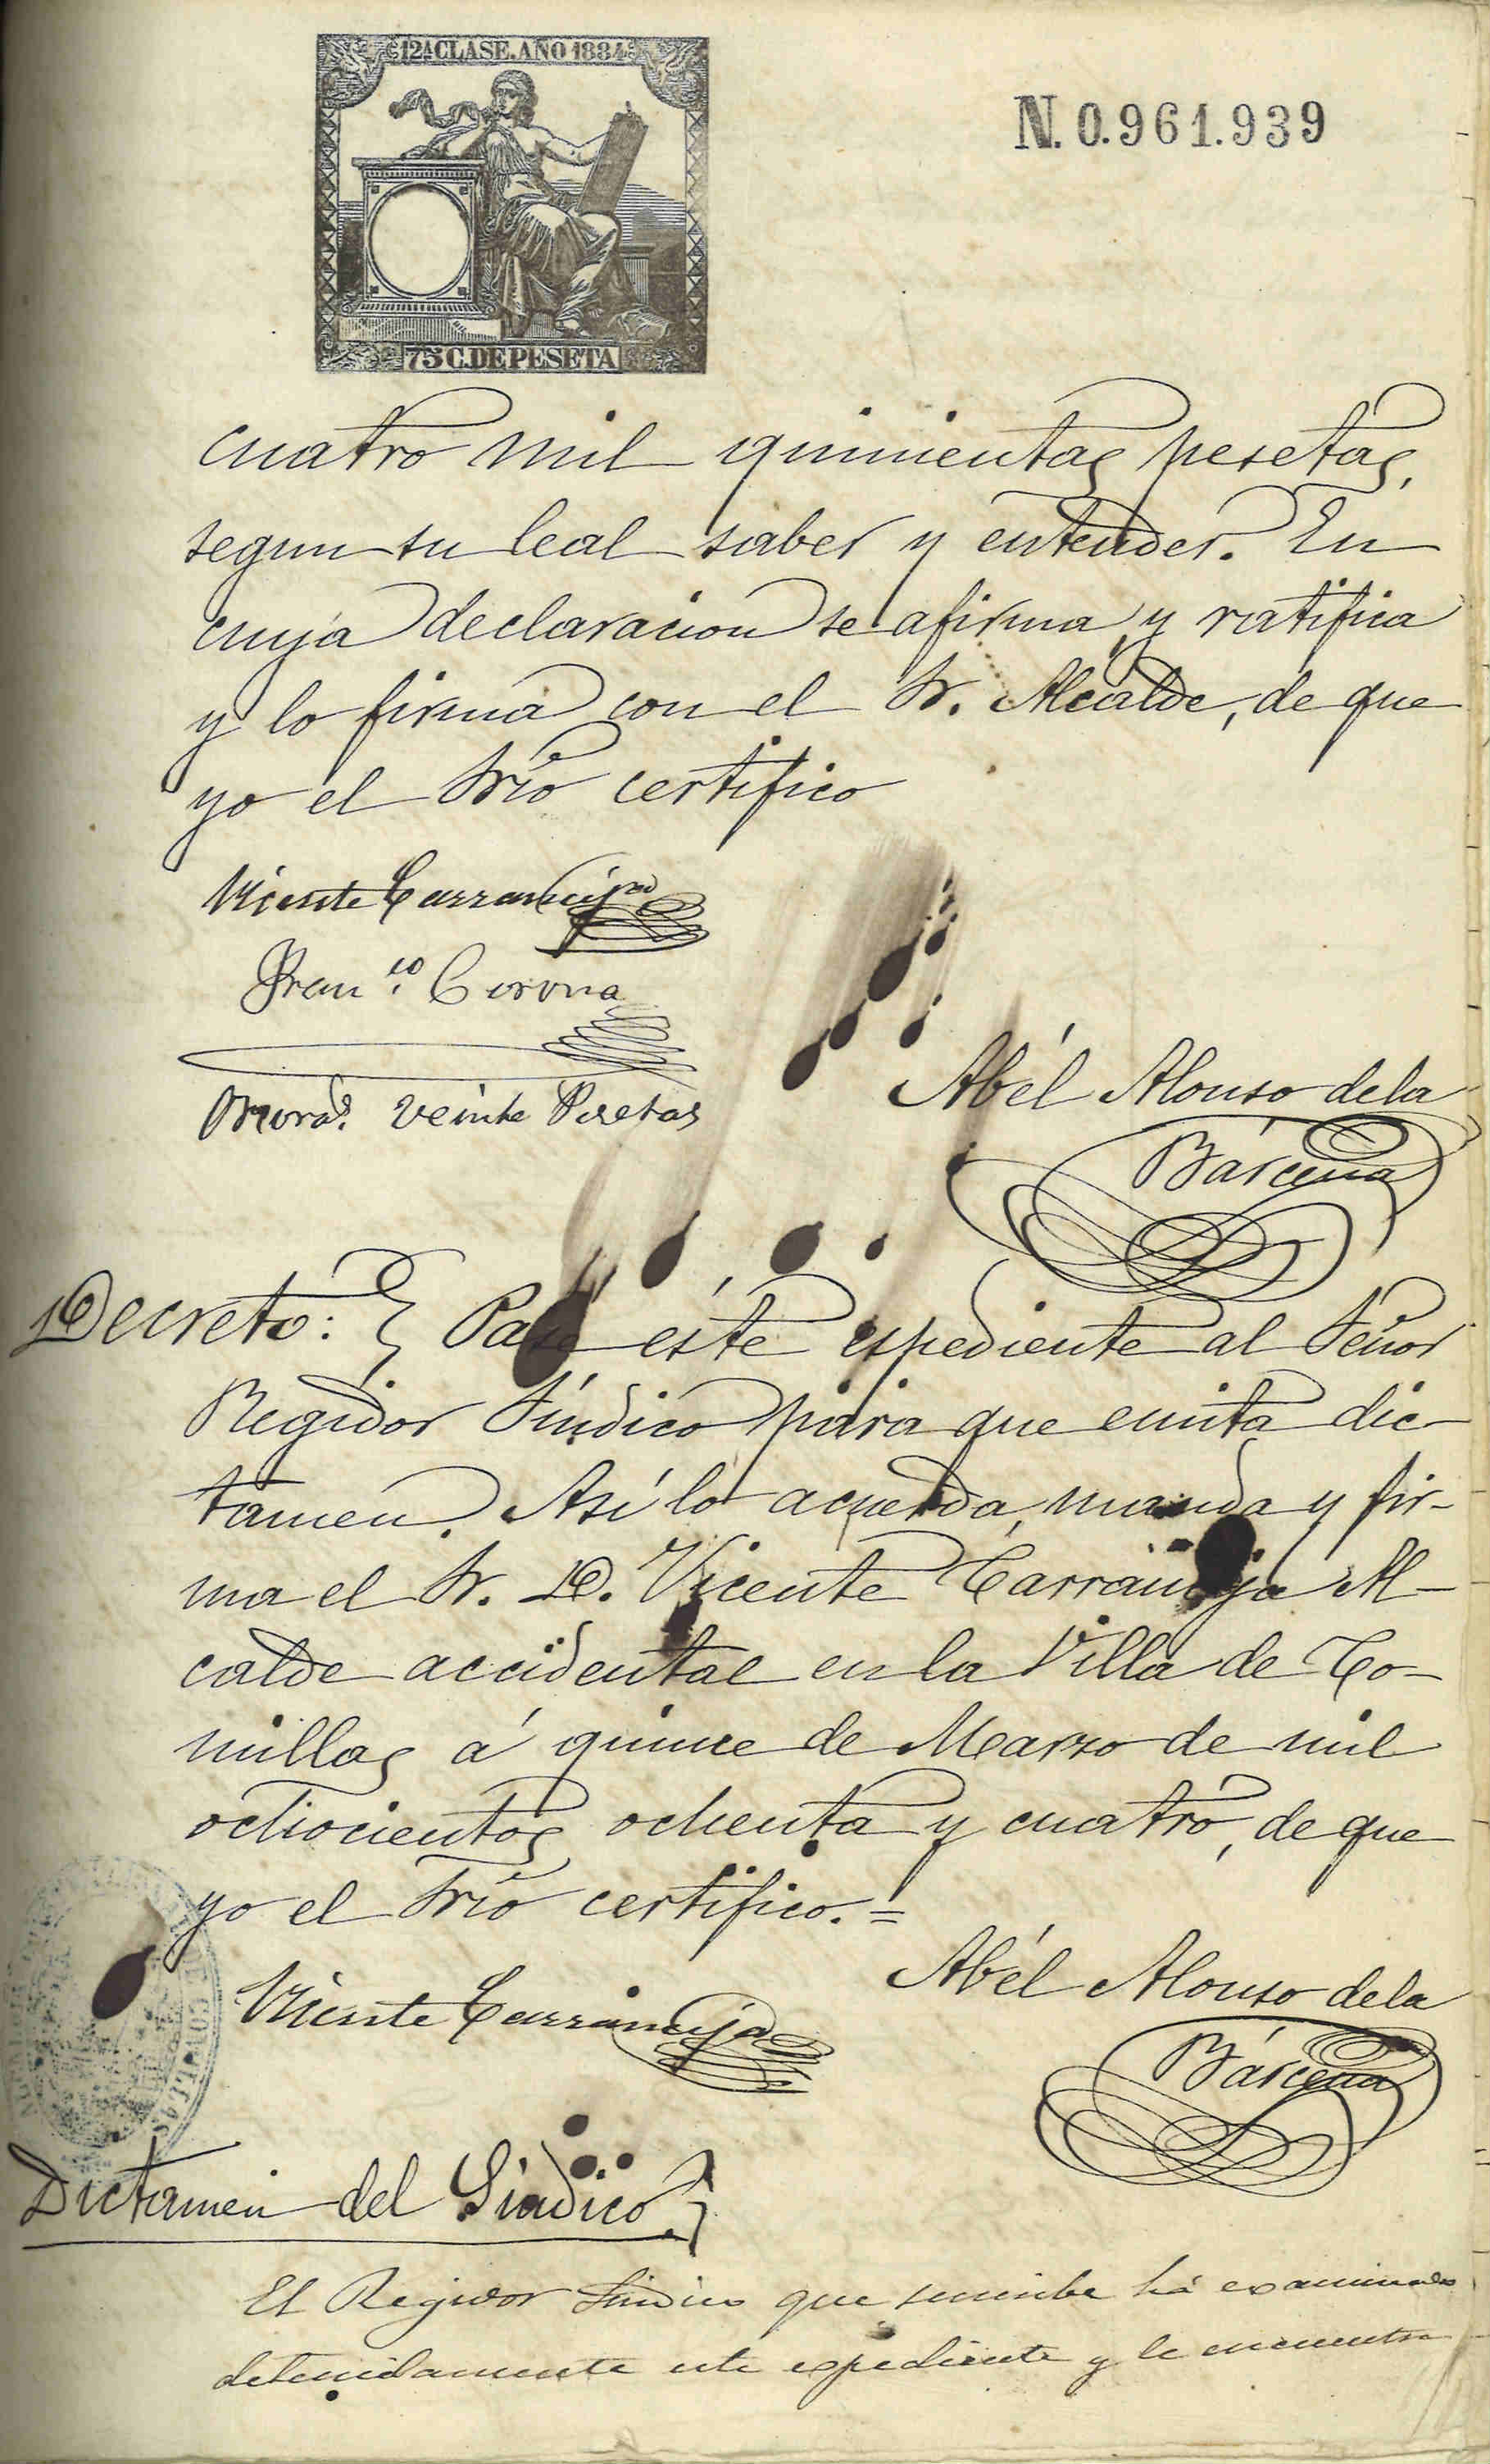 12ª CLASE. AÑO 1884
N. 0.961.939
75 C. DE PESETA
cuatro mil quinientas pesetas,
segun su leal saber y entender. En
cuya declaracion se afirma y ratifica
y lo firma con el Sr. Alcalde, de que
yo el Srio certifico
Vicente Carranceja
Franco. Corona
Abél Alonso de la
Bárcena
Honos. veinte Pesetas
Decreto: Pase éste espediente al Señor
Regidor Síndico para que emita dic-
tamen. Asi lo acuerda, manda y fir-
ma el Sr. D. Vicente Carranceja Al-
calde accidental en la Villa de Co-
millas á quince de Marzo de mil
ochocientos ochenta y cuatro, de que
yo el Srio certifico. =
Vicente Carranceja
Abél Alonso de la
Bárcena
Dictamen del Síndico
El Regidor Síndico que suscribe há examinado
detenidamente este espediente y le encuentra